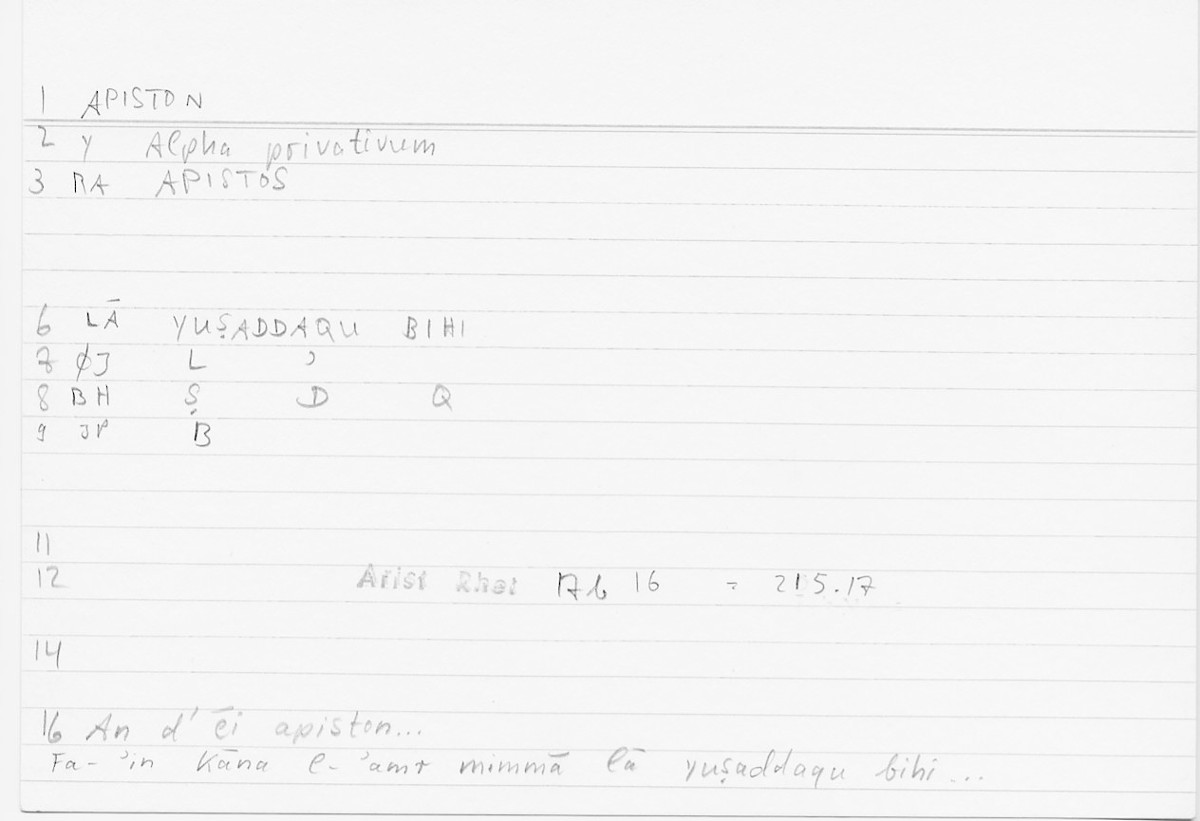 1 APISTON
2 y Alpha privativum
3 RA APISTOS
6 LĀ YUṢADDAQU BIHI
7 ØJ L ʾ
8 BH Ṣ D Q
9 JP B
11
12 Arist Rhet 17b 16 = 215.17
14
16 An d' ēi apiston...
Fa-ʾin Kāna l-ʾamr mimmā lā yuṣaddaqu bihi...